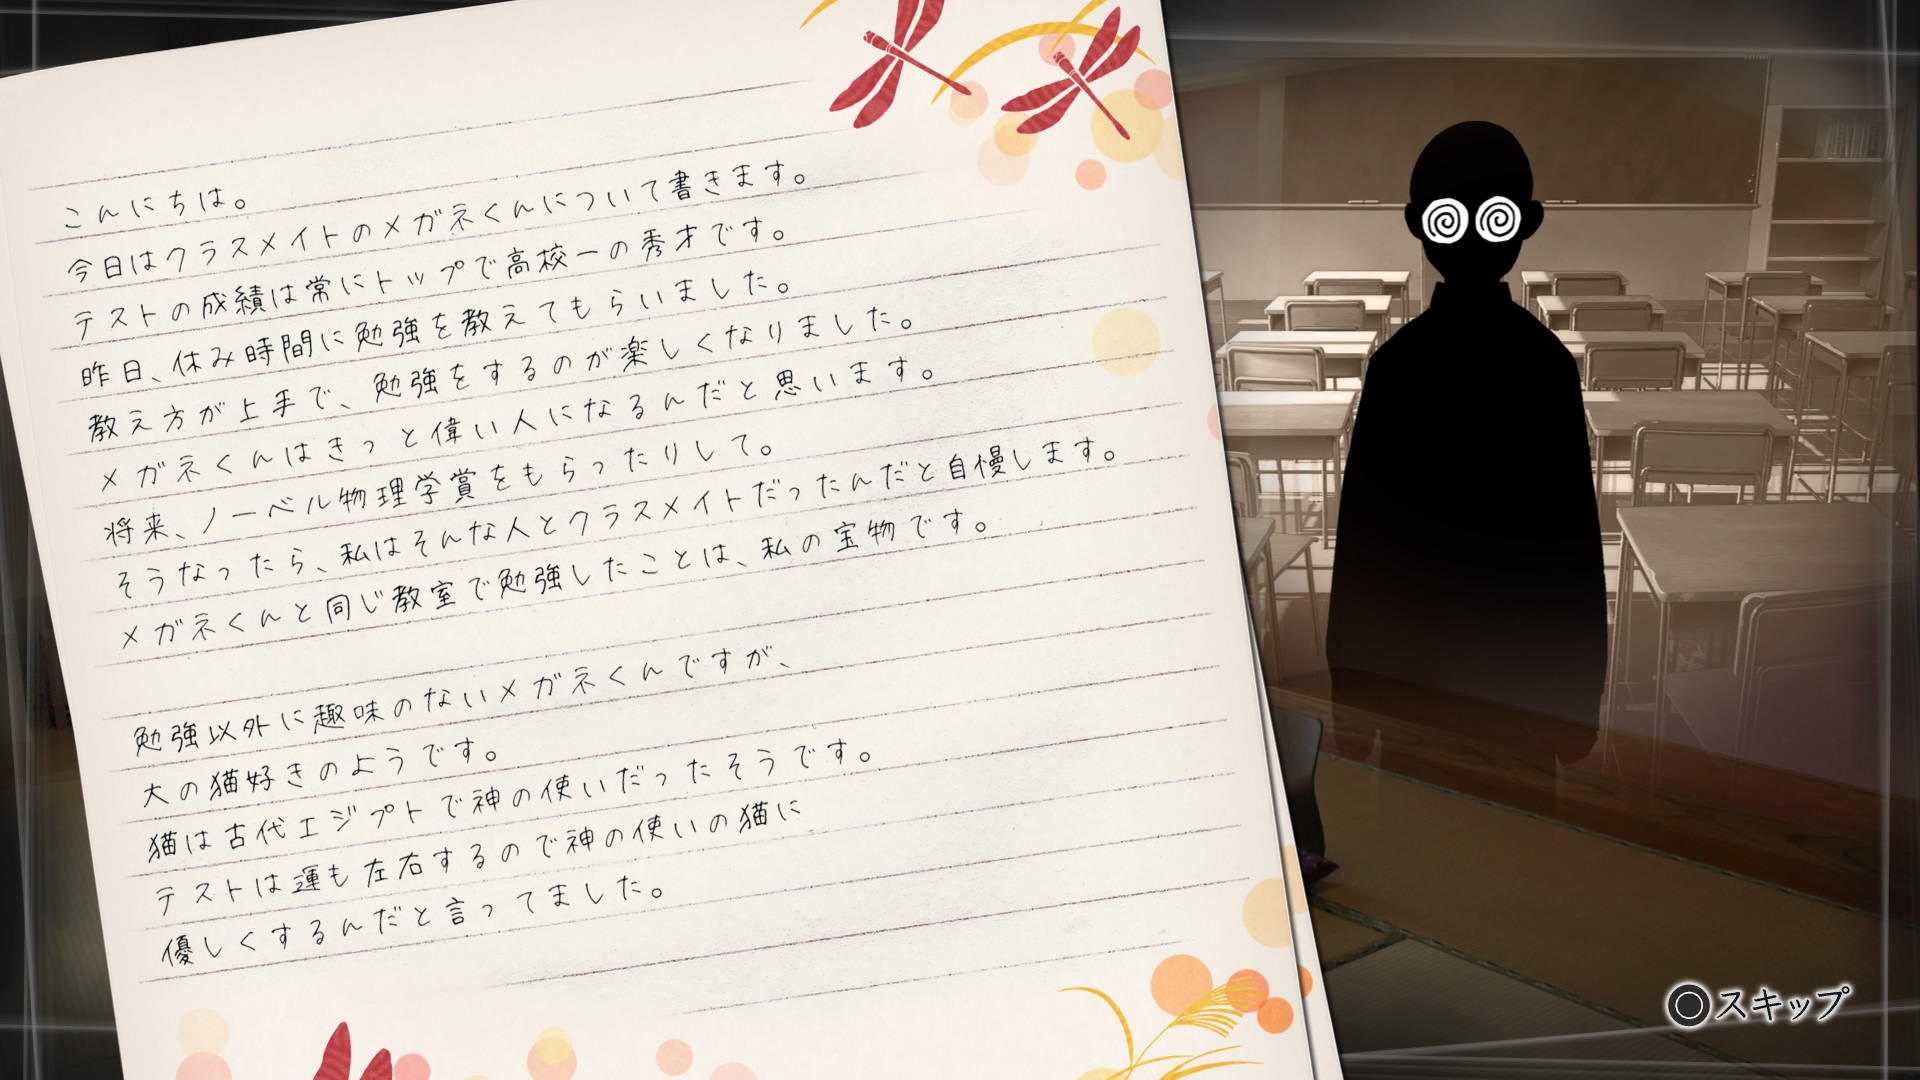 こんにちは。
今日はクラスメイトのメガネくんについて書きます。
テストの成績は常にトップで高校一の秀才です。
昨日、休み時間に勉強を教えてもらいました。
教え方が上手で、勉強をするのが楽しくなりました。
メガネくんはきっと偉い人になるんだと思います。
将来、ノーベル物理学賞をもらったりして。
そうなったら、私はそんな人とクラスメイトだったんだと自慢します。
メガネくんと同じ教室で勉強したことは、私の宝物です。
勉強以外に趣味のないメガネくんですが、
大の猫好きのようです。
猫は古代エジプトで神の使いだったそうです。
テストは運も左右するので神の使いの猫に
優しくするんだと言ってました。
スキップ